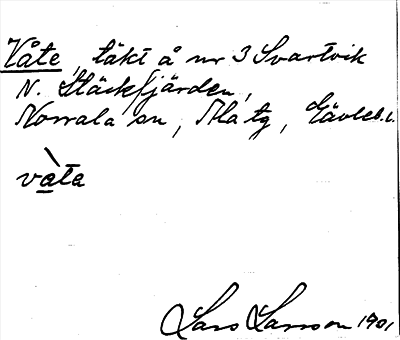 Våte, täkt å nr 3 Svartvik
N. Stäckfjärden,
Norrala sn, Ala tg, Gävleb. l.
vàta
Lars Larsson 1901